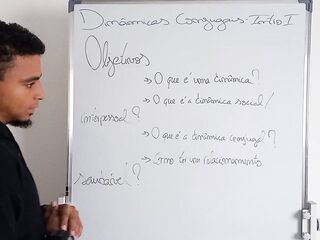 Dinâmicas Conjugais - Início I
Objetivos
→ O que é uma dinâmica?
→ O que é a dinâmica social/
interpessoal?
→ O que é a dinâmica conjugal?
→ Como ter um relacionamento
saudável?